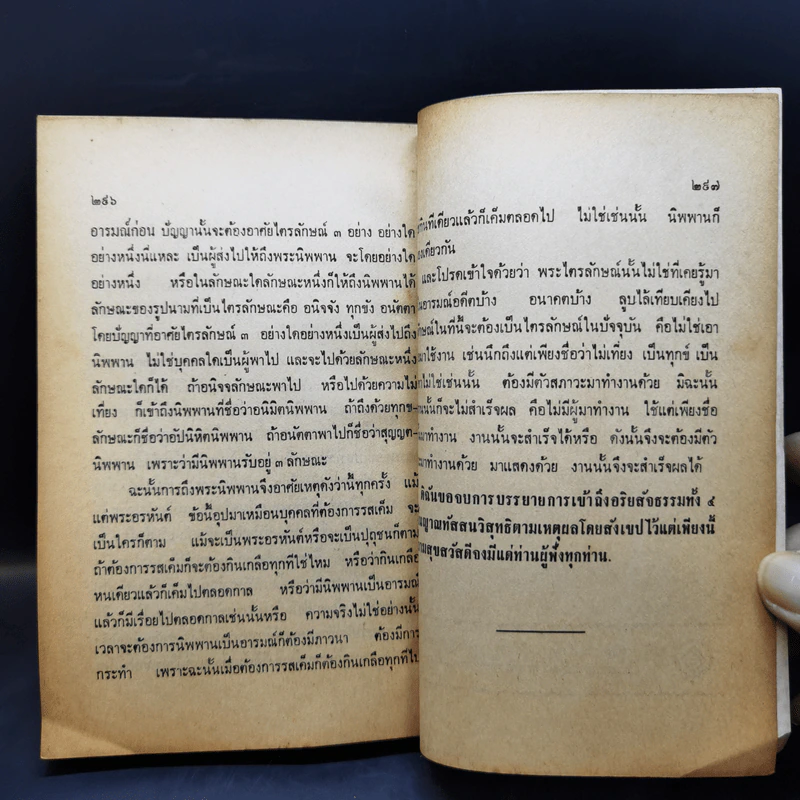 ๒๙๖
อารมณ์ก่อน ปัญญานั้นจะต้องอาศัยไตรลักษณ์ ๓ อย่าง อย่างใด
อย่างหนึ่งนี่แหละ เป็นผู้ส่งไปให้ถึงพระนิพพาน จะโดยอย่างใด
อย่างหนึ่ง หรือในลักษณะใดลักษณะหนึ่งก็ให้ถึงนิพพานได้
ลักษณะของรูปนามที่เป็นไตรลักษณะคือ อนิจจัง ทุกขัง อนัตตา
โดยปัญญาที่อาศัยไตรลักษณ์ ๓ อย่างใดอย่างหนึ่งเป็นผู้ส่งไปถึง
นิพพาน ไม่ใช่บุคคลใดเป็นผู้พาไป และจะไปด้วยลักษณะหนึ่ง
ลักษณะใดก็ได้ ถ้าอนิจจลักษณะพาไป หรือไปด้วยความไม่
เที่ยง ก็เข้าถึงนิพพานที่ชื่อว่าอนิมิตนิพพาน ถ้าถึงด้วยทุกข-
ลักษณะก็ชื่อว่าอัปนิหิตนิพพาน ถ้าอนัตตาพาไปก็ชื่อว่าสุญญต-
นิพพาน เพราะว่ามีนิพพานรับอยู่ ๓ ลักษณะ
ฉะนั้นการถึงพระนิพพานจึงอาศัยเหตุดังว่านี้ทุกครั้ง แม้
แต่พระอรหันต์ ข้อนี้อุปมาเหมือนบุคคลที่ต้องการรสเค็ม จะ
เป็นใครก็ตาม แม้จะเป็นพระอรหันต์หรือจะเป็นปุถุชนก็ตาม
ถ้าต้องการรสเค็มก็จะต้องกินเกลือทุกทีใช่ไหม หรือว่ากินเกลือ
หนเดียวแล้วก็เค็มไปตลอดกาล หรือว่ามีนิพพานเป็นอารมณ์
แล้วก็มีเรื่อยไปตลอดกาลเช่นนั้นหรือ ความจริงไม่ใช่อย่างนั้น
เวลาจะต้องการนิพพานเป็นอารมณ์ก็ต้องมีภาวนา ต้องมีการ
กระทำ เพราะฉะนั้นเมื่อต้องการรสเค็มก็ต้องกินเกลือทุกทีไป
๒๙๗
กินทีเดียวแล้วก็เค็มตลอดไป ไม่ใช่เช่นนั้น นิพพานก็
เดียวกัน
และโปรดเข้าใจด้วยว่า พระไตรลักษณ์นั้นไม่ใช่ที่เคยรู้มา
อารมณ์อดีตบ้าง อนาคตบ้าง ลูบไล้เทียบเคียงไป
ในที่นี้จะต้องเป็นไตรลักษณ์ในปัจจุบัน คือไม่ใช่เอา
มาใช้งาน เช่นนึกถึงแต่เพียงชื่อว่าไม่เที่ยง เป็นทุกข์ เป็น
ไม่ใช่เช่นนั้น ต้องมีตัวสภาวะมาทำงานด้วย มิฉะนั้น
นั้นก็จะไม่สำเร็จผล คือไม่มีผู้มาทำงาน ใช้แต่เพียงชื่อ
มาทำงาน งานนั้นจะสำเร็จได้หรือ ดังนั้นจึงจะต้องมีตัว
มาทำงานด้วย มาแสดงด้วย งานนั้นจึงจะสำเร็จผลได้
ดิฉันขอจบการบรรยายการเข้าถึงอริยสัจธรรมทั้ง ๔
ญาณทัสสนวิสุทธิตามเหตุผลโดยสังเขปไว้แต่เพียงนี้
สุขสวัสดีจงมีแต่ท่านผู้ฟังทุกท่าน.